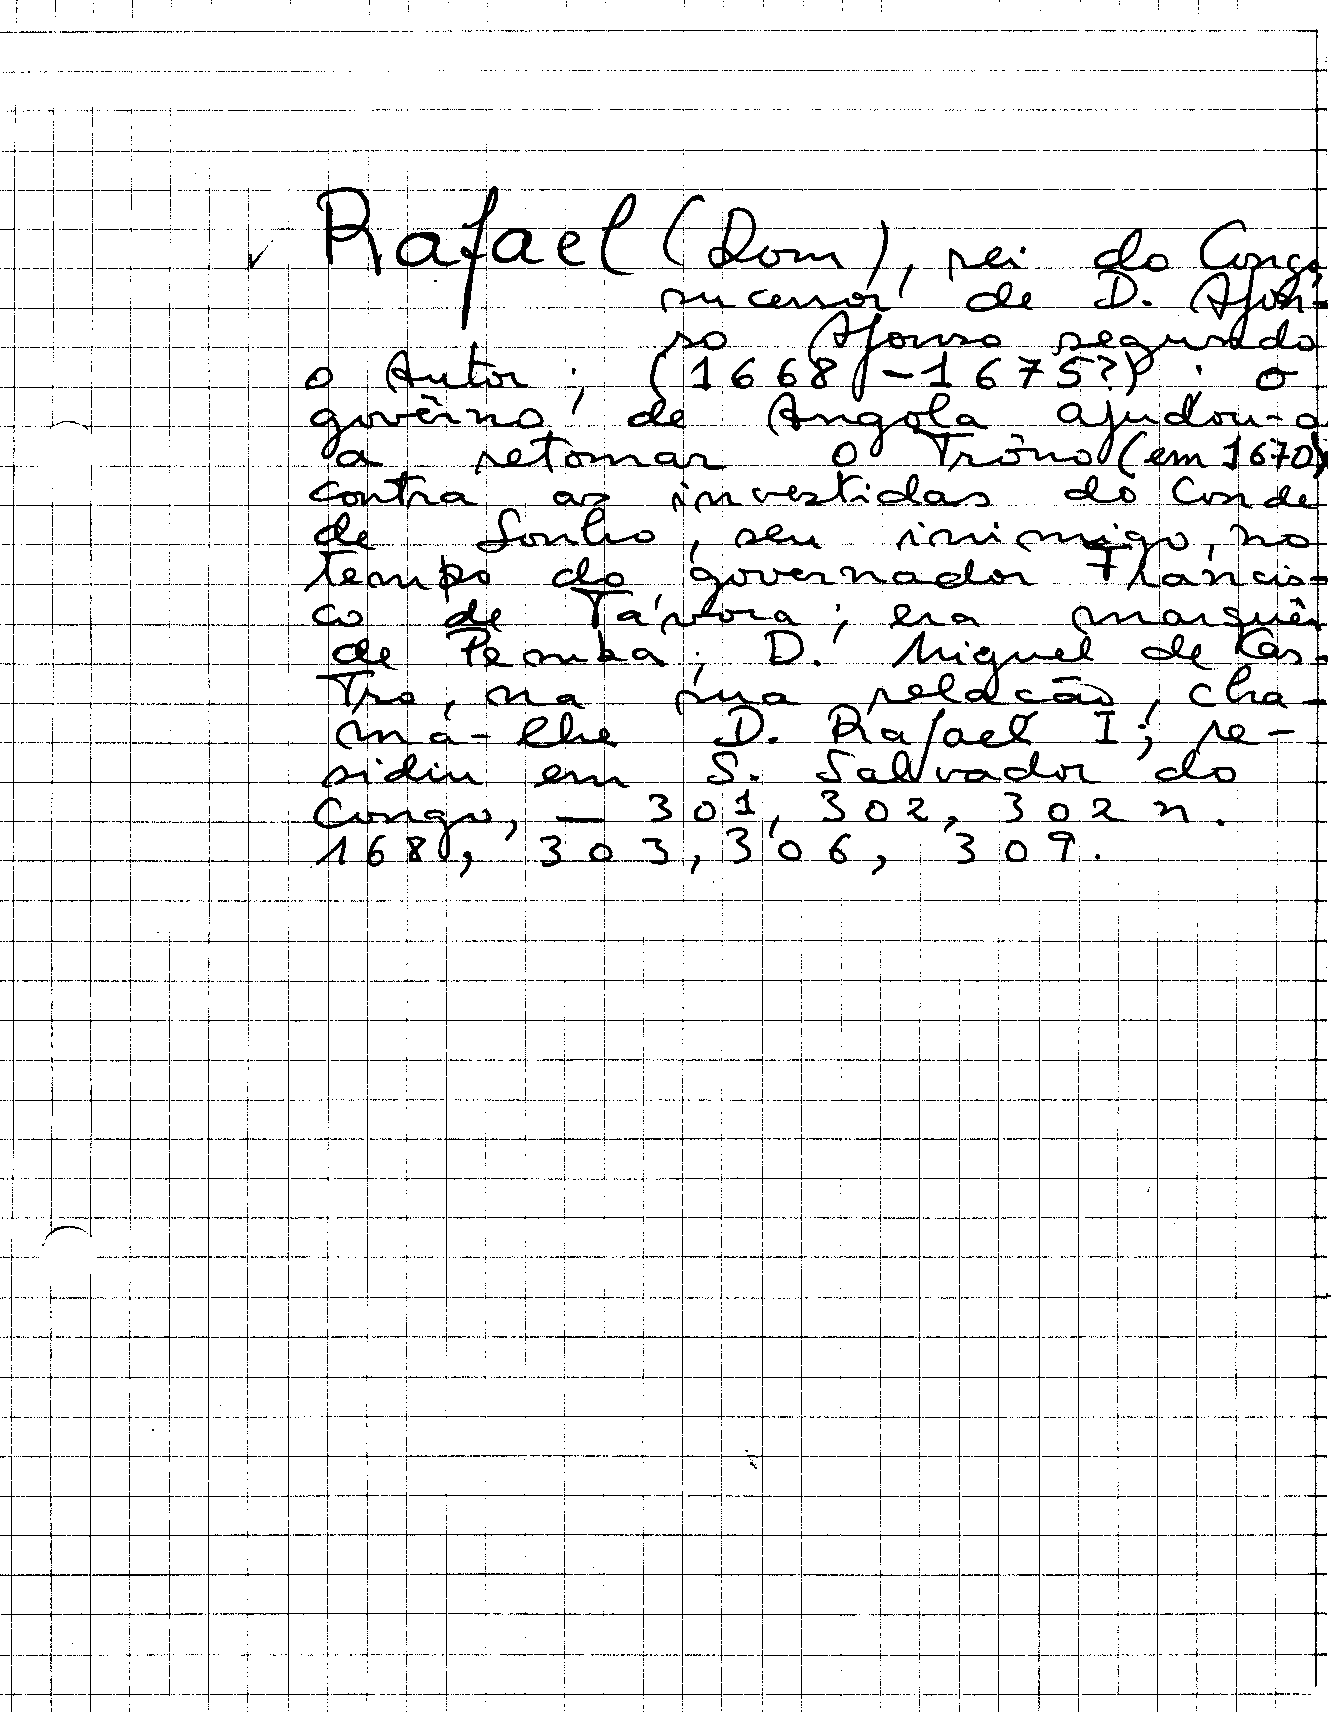 Rafael (Dom), rei do Congo,
sucessor de D. Afon-
so Afonso segundo
o Autor; (1668-1675?); o
govêrno de Angola ajudou-o
a retomar o Trôno (em 1670)
contra as investidas do Conde
de Sonho, seu inimigo, no
tempo do governador Francis-
co de Távora; era marquês
de Pemba; D. Miguel de Cas-
tro, na sua relação, cha-
ma-lhe D. Rafael I; re-
sidiu em S. Salvador do
Congo, — 301, 302, 302 n.
168, 303, 306, 309.